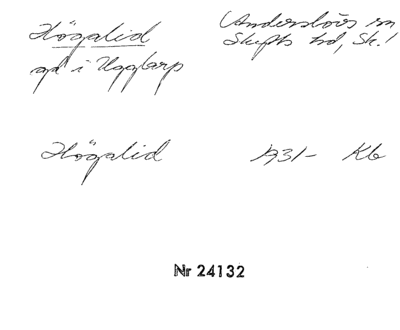 Högalid
gd i Ugglarp
Anderslövs sn
Skytts hd, Sk.!
Högalid 1931- Kb
Nr 24132